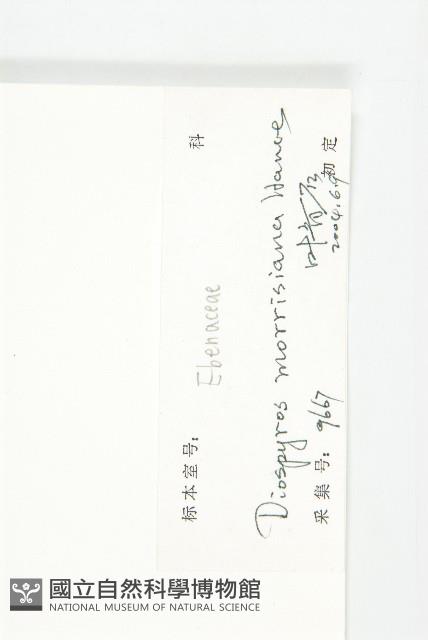 标本室号：
科
Ebenaceae
Diospyros morrisiana Hance
采集号：9667
初定
2004.6.9
國立自然科學博物館
NATIONAL MUSEUM OF NATURAL SCIENCE